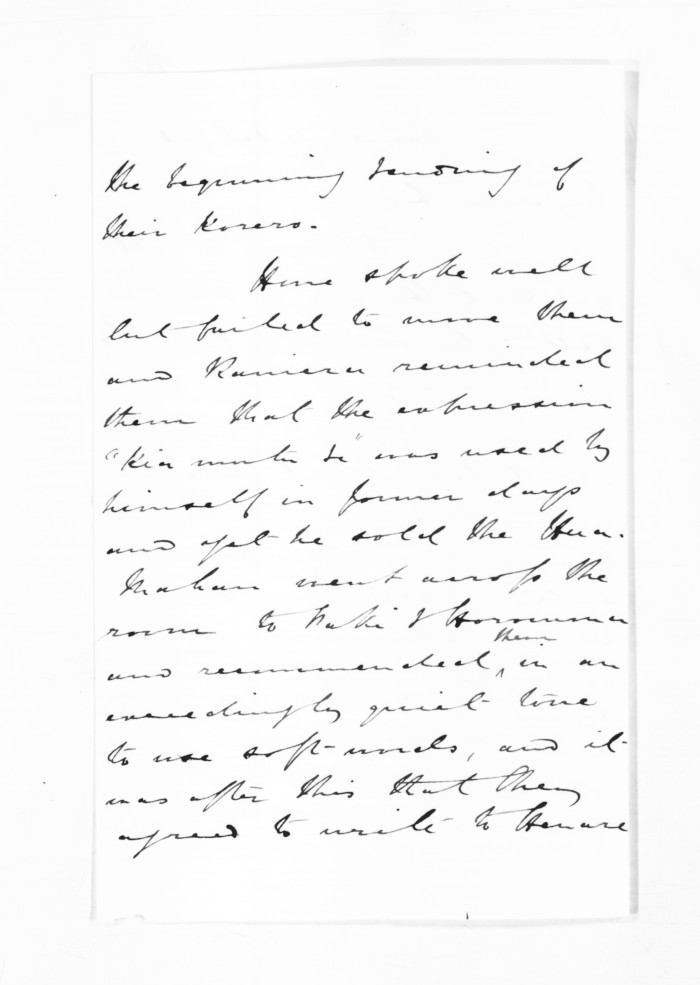 the beginning & ending of
their Korero.
Hone spoke well
but failed to move them
and Raniera reminded
them that the expression
"Kia mutu te" was used by
himself in former days
and yet he sold the Hua.
Mahau went across the
room to Taki & Horomona
and recommended them in an
exceedingly quiet tone
to use soft words, and it
was after this that they
agreed to write to Henare